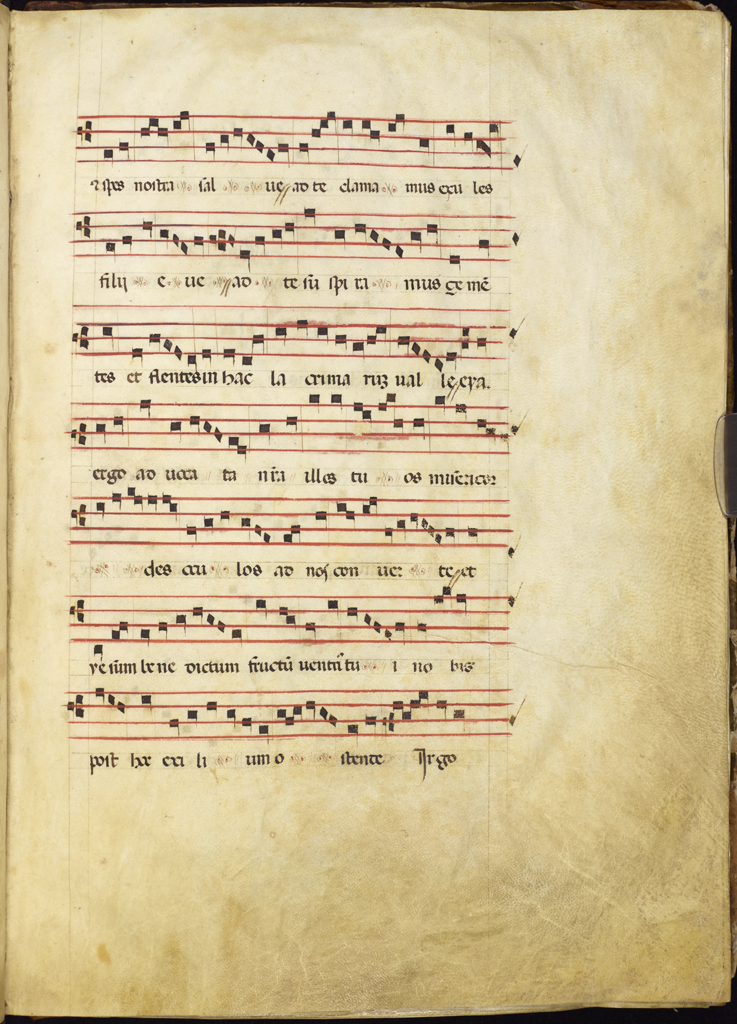 ⁊ spes nostra sal ue ad te clama mus exu les
filij e ue ad te su̅ spi ra mus ge me̅
tes et flentes in hac la crima ruꝫ ual le eya.
ergo ad uoca ta nr̅a illos tu os mise̅ricor
des ocu los ad nos con uer te et
yesum be ne dictum fructu̅ uentris tu i no bis
post hoc exi li um o stente Virgo